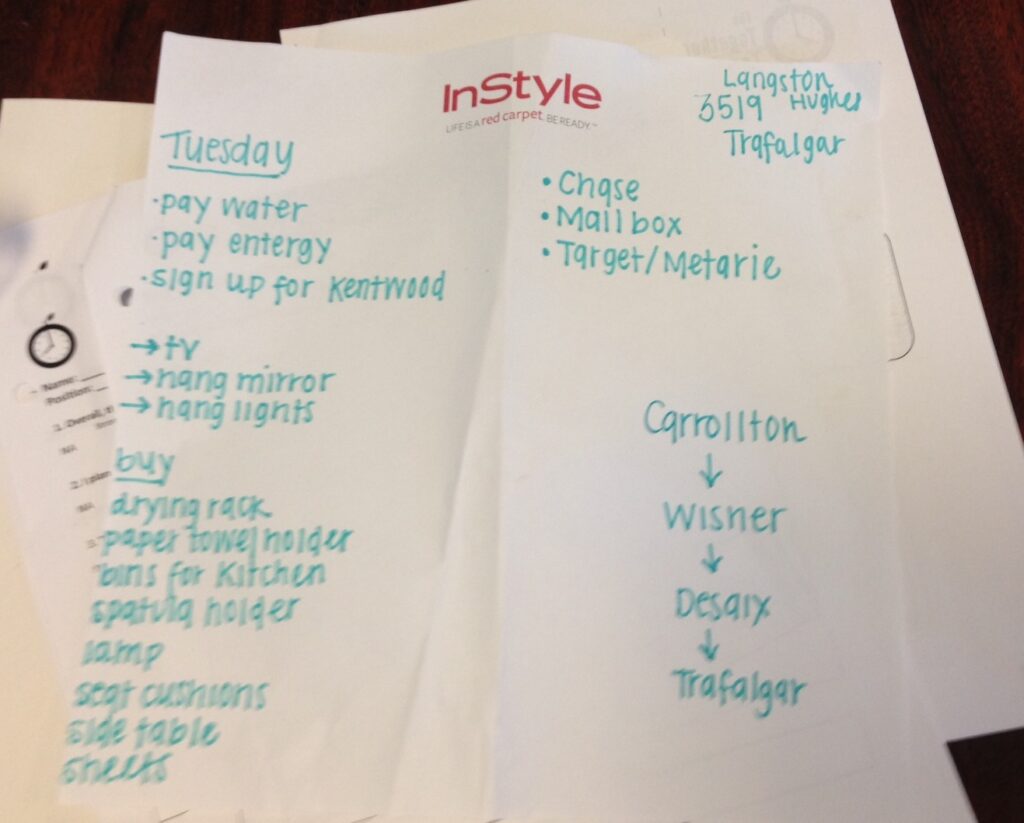 InStyle
LIFE IS A red carpet. BE READY.™
Langston
3519 Hughes
Trafalgar
Tuesday
·pay water
·pay entergy
·sign up for Kentwood
→tv
→hang mirror
→hang lights
buy
drying rack
paper towel holder
bins for kitchen
spatula holder
lamp
seat cushions
side table
sheets
• Chase
• Mailbox
• Target/Metarie
Carrollton
↓
Wisner
↓
Desaix
↓
Trafalgar
Name:
Position:
1. Overall,
NA
2. I plan
NA
3.
Together